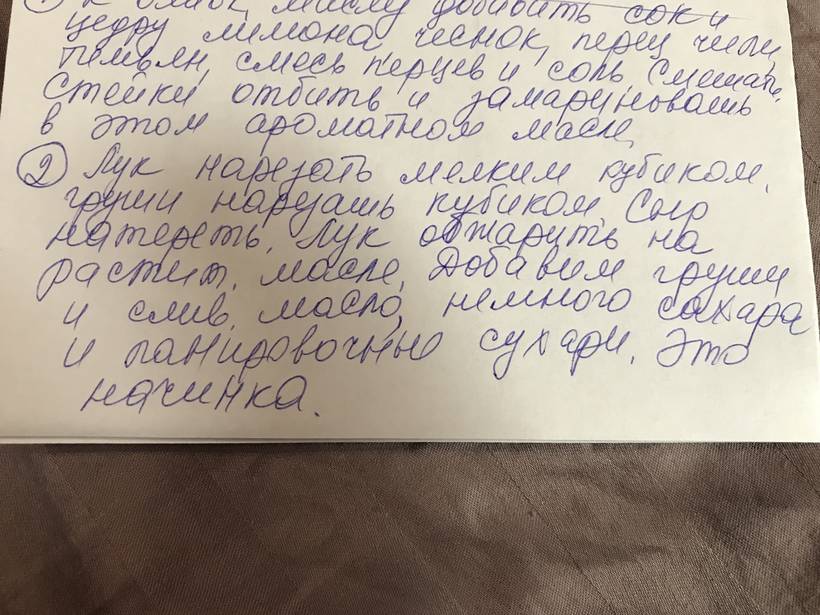 1 К олив. маслу добавить сок и
цедру лимона чеснок, перец чили,
тимьян, смесь перцев и соль Смешать.
Стейки отбить и замариновать
в этом ароматном масле,
2 Лук нарезать мелким кубиком,
груши нарезать кубиком. Сыр
натереть. Лук обжарить на
растит. масле. Добавим груши
и слив. масло, немного сахара
и панировочные сухари. Это
начинка.